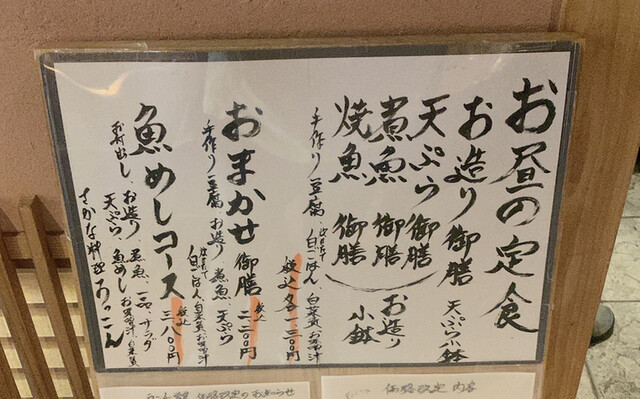 お昼の定食
お造り御膳 天ぷら小鉢
天ぷら御膳
煮魚御膳 お造り
焼魚御膳 小鉢
手作り豆腐、白ごはん、白菜漬、お味噌汁
税込各一、三〇〇円
おまかせ御膳 税込二、二〇〇円
手作り豆腐 お造り 煮魚、天ぷら
白ごはん、白菜漬、お味噌汁
魚めしコース 税込三、八〇〇円
お付出し、お造り、煮魚一品、サラダ
天ぷら、魚めし、お味噌汁、白菜漬
さかな料理
価格改定のお知らせ
価格改定内容